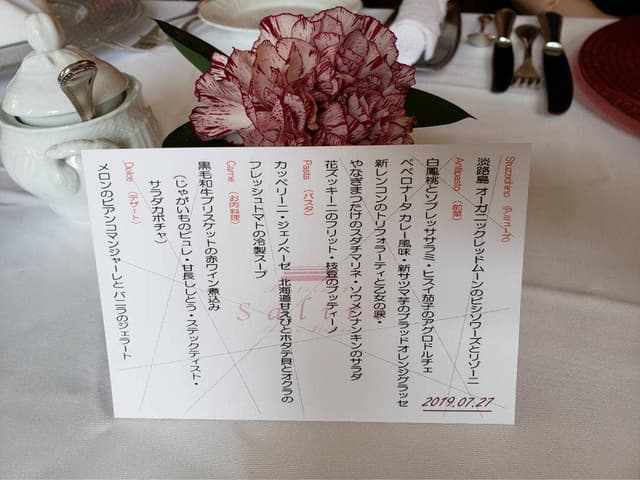 Stuzzichino (アミューズ)
淡路島 オーガニックレッドムーンのビシソワーズとリゾーニ
Antipasto (前菜)
白鳳桃とソフレッササラミ・ヒスイ茄子のアグロドルチェ
ペペロナータ カレー風味・新サツマ芋のブラッドオレンジグラッセ
新レンコンのトリフォラーティと乙女の涙・
やなぎまつたけのスダチマリネ・ソウメンナンキンのサラダ
花ズッキーニのフリット・枝豆のブッティーノ
Pasta (パスタ)
カッペリーニ・ジェノベーゼ 北海道甘えびとホタテ貝とオクラの
フレッシュトマトの冷製スープ
Carne (お肉料理)
黒毛和牛ブリスケットの赤ワイン煮込み
(じゃがいものピュレ・甘長ししとう・ステックティスト・
サラダカボチャ)
Dolce (デザート)
メロンのビアンコマンジャーレとバニラのジェラート
2019.07.27